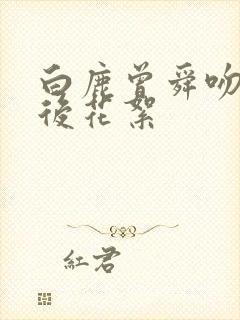 白鹿曾舜吻
後花絮
紅君